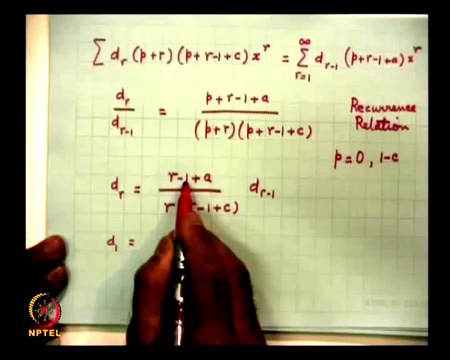 ∑ d_r (p+r) (p+r-1+c) x^r = ∑_{r=1}^{∞} d_{r-1} (p+r-1+a) x^r
d_r / d_{r-1} = (p+r-1+a) / ((p+r)(p+r-1+c))
Recurrence
Relation
p=0, 1-c
d_r = (r-1+a) / (r r-1+c) d_{r-1}
d_1 =
NPTEL